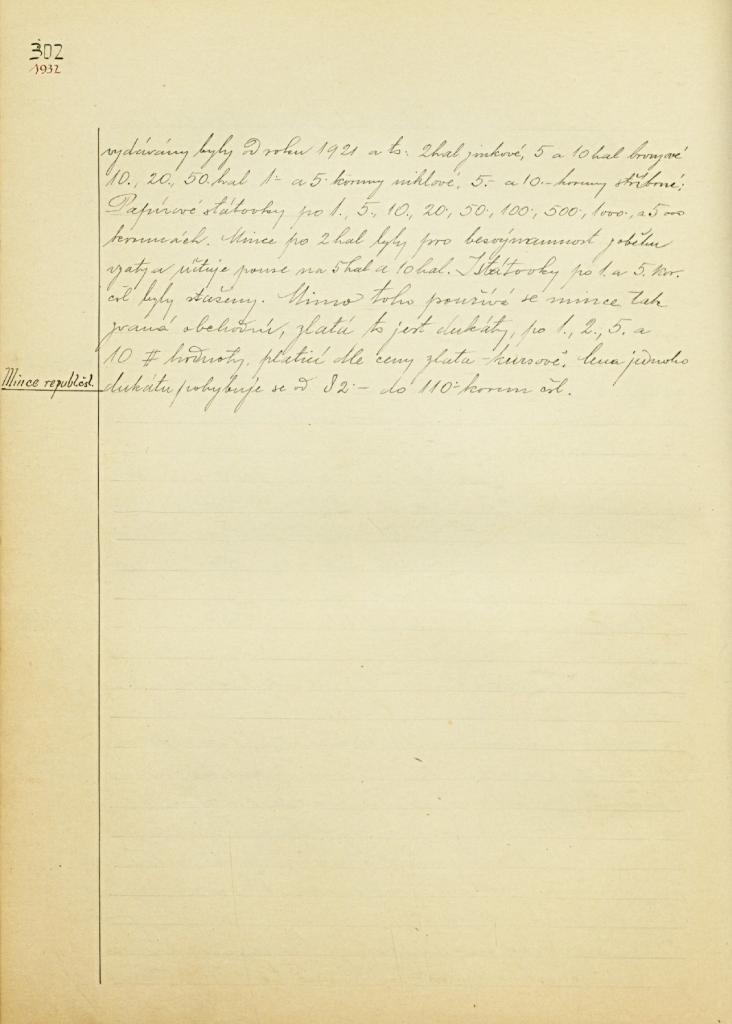 302
1932
vydávány byly od roku 1921 a to: 2hal zinkové, 5 a 10 hal bronzové
10., 20., 50. hal 1.- a 5. koruny niklové, 5.- a 10.- koruny stříbrné;
Papírové státovky po 1., 5., 10., 20., 50., 100., 500., 1000., a 5000
korunách. Mince po 2 hal byly pro bezvýznamnost z oběhu
vzaty a účtuje pouze na 5 hal a 10 hal. I státovky po 1. a 5. kor.
čsl byly staženy. Mimo toho používá se mince tak
zvaná obchodní, zlatá to jest dukáty, po 1., 2., 5. a
10 # hodnoty, platící dle ceny zlata - kursové. Cena jednoho
Mince republ. čsl.
dukátu pohybuje se od 82.- do 110.- korun čsl.